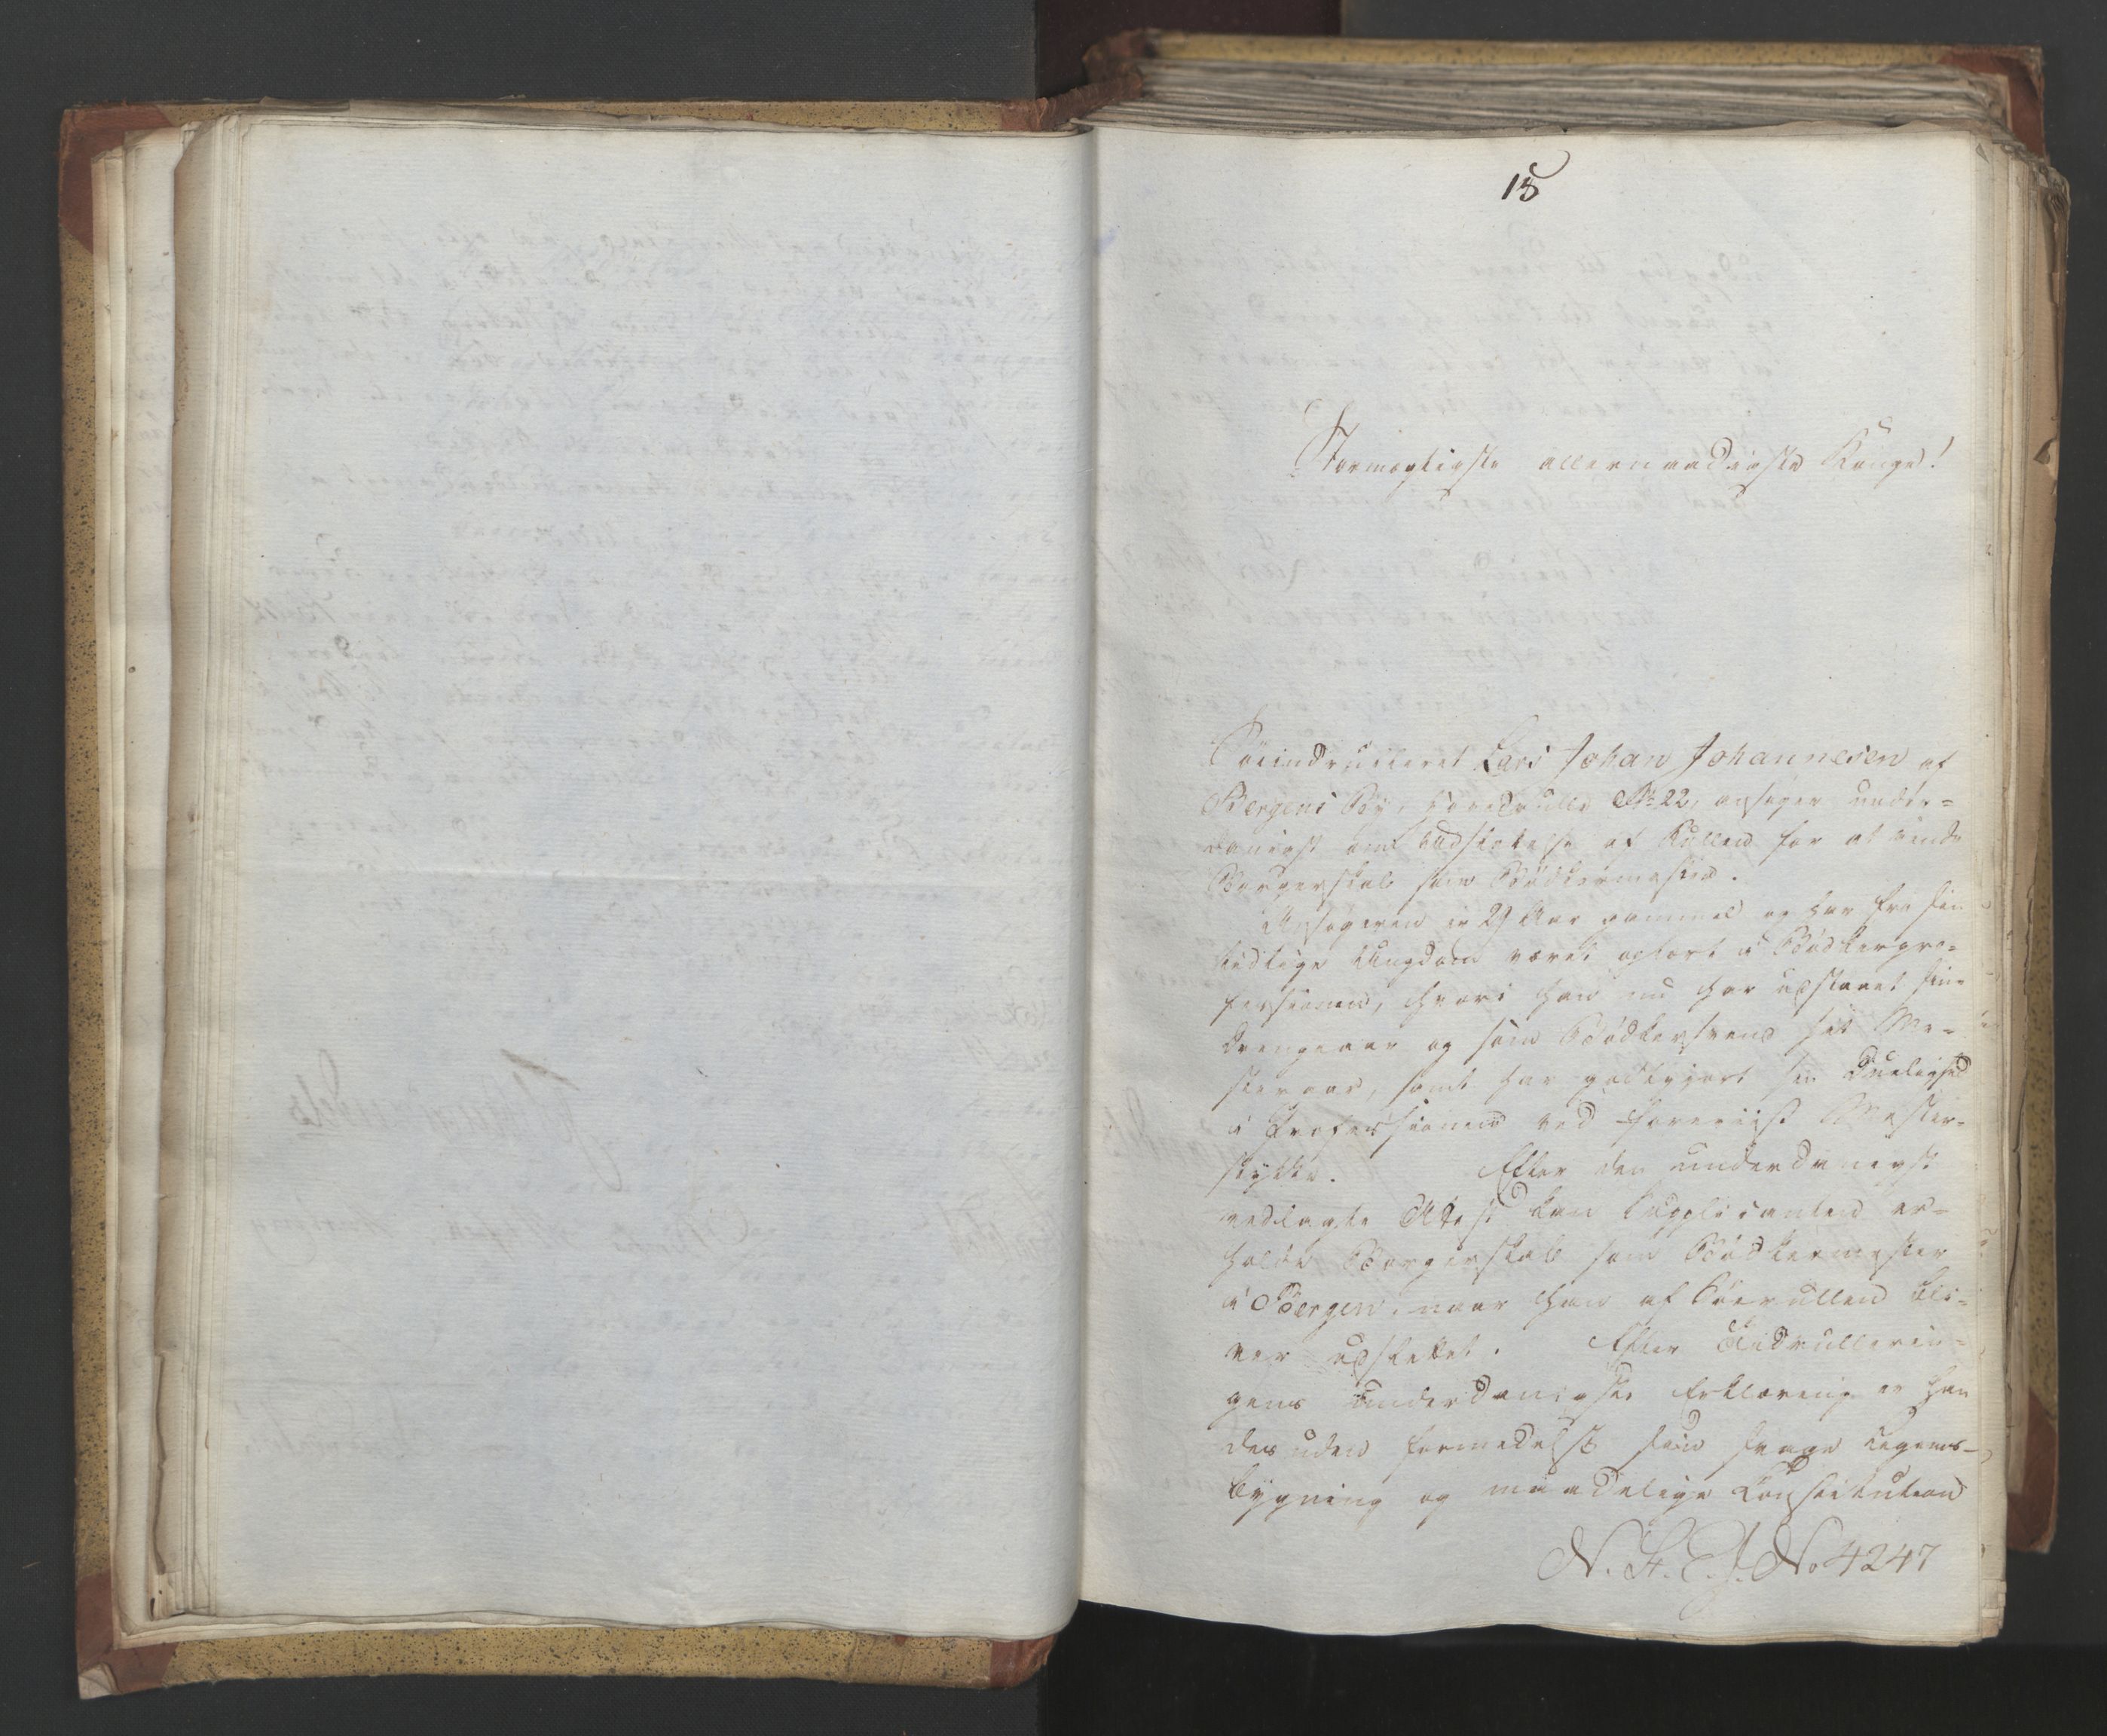 18
Stormægtigste allernaadigste Konge!
Søeindrulleret Lars Johan Johannesen af
Bergens By, Hovedrulle No 22, ansøger under-
danigst om Udslettelse af Rullen for at vinde
Borgerskab som Bødkermester.
Ansøgeren er 29 Aar gammel og har fra sin
tidlige Ungdom været oplært i Bødkerpro-
fessionen, hvori han nu har udstaaet sine
Drengeaar og som Bødkersvend sit Me-
steraar, samt har godtgjort sin Duelighed
i Professionen ved foreviist Mester-
stykke. Efter den underdanigst
vedlagte Attest kan Supplicanten er-
holde Borgerskab som Bødkermester
i Bergen, naar han af Søerullen bli-
ver udslettet. Efter Indrullerin-
gens underdanigste Erklæring er han
desuden formedelst sin svage Legems-
bygning og maadelige Constitution
N. St. C. J. No 4247